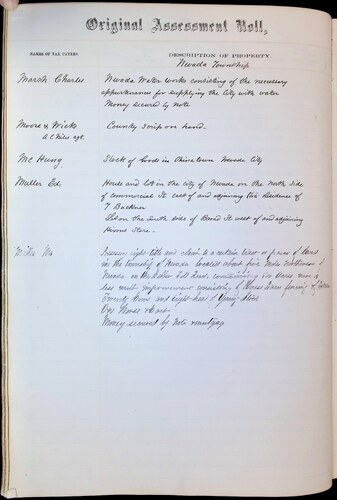 Original Assessment Roll,
NAMES OF TAX PAYERS.
DESCRIPTION OF PROPERTY.
Nevada Township
Marsh Charles
Nevada Water works consisting of the necessary
appurtenances for supplying the City with water
Money secured by note
Moore & Wicks
County scrip on hand.
A.C. Niles agt.
Mc Hung
Stock of Goods in Chinetown Nevada City
Muller Ed,
House and Lot in the city of Nevada on the North side
of Commercial St. east of and adjoining the Residence of
T Buckner
Lot on the South side of Broad St west of and adjoining
Hirons Store.
Possessory right title and claim to a certain tract or piece of land
in the township of Nevada located about five miles northwest of
Nevada on the
less with improvements consisting of House Barn fencing
Twenty Four and eight head of young Stock
One Horse & Cart
Money secured by note & mortgage